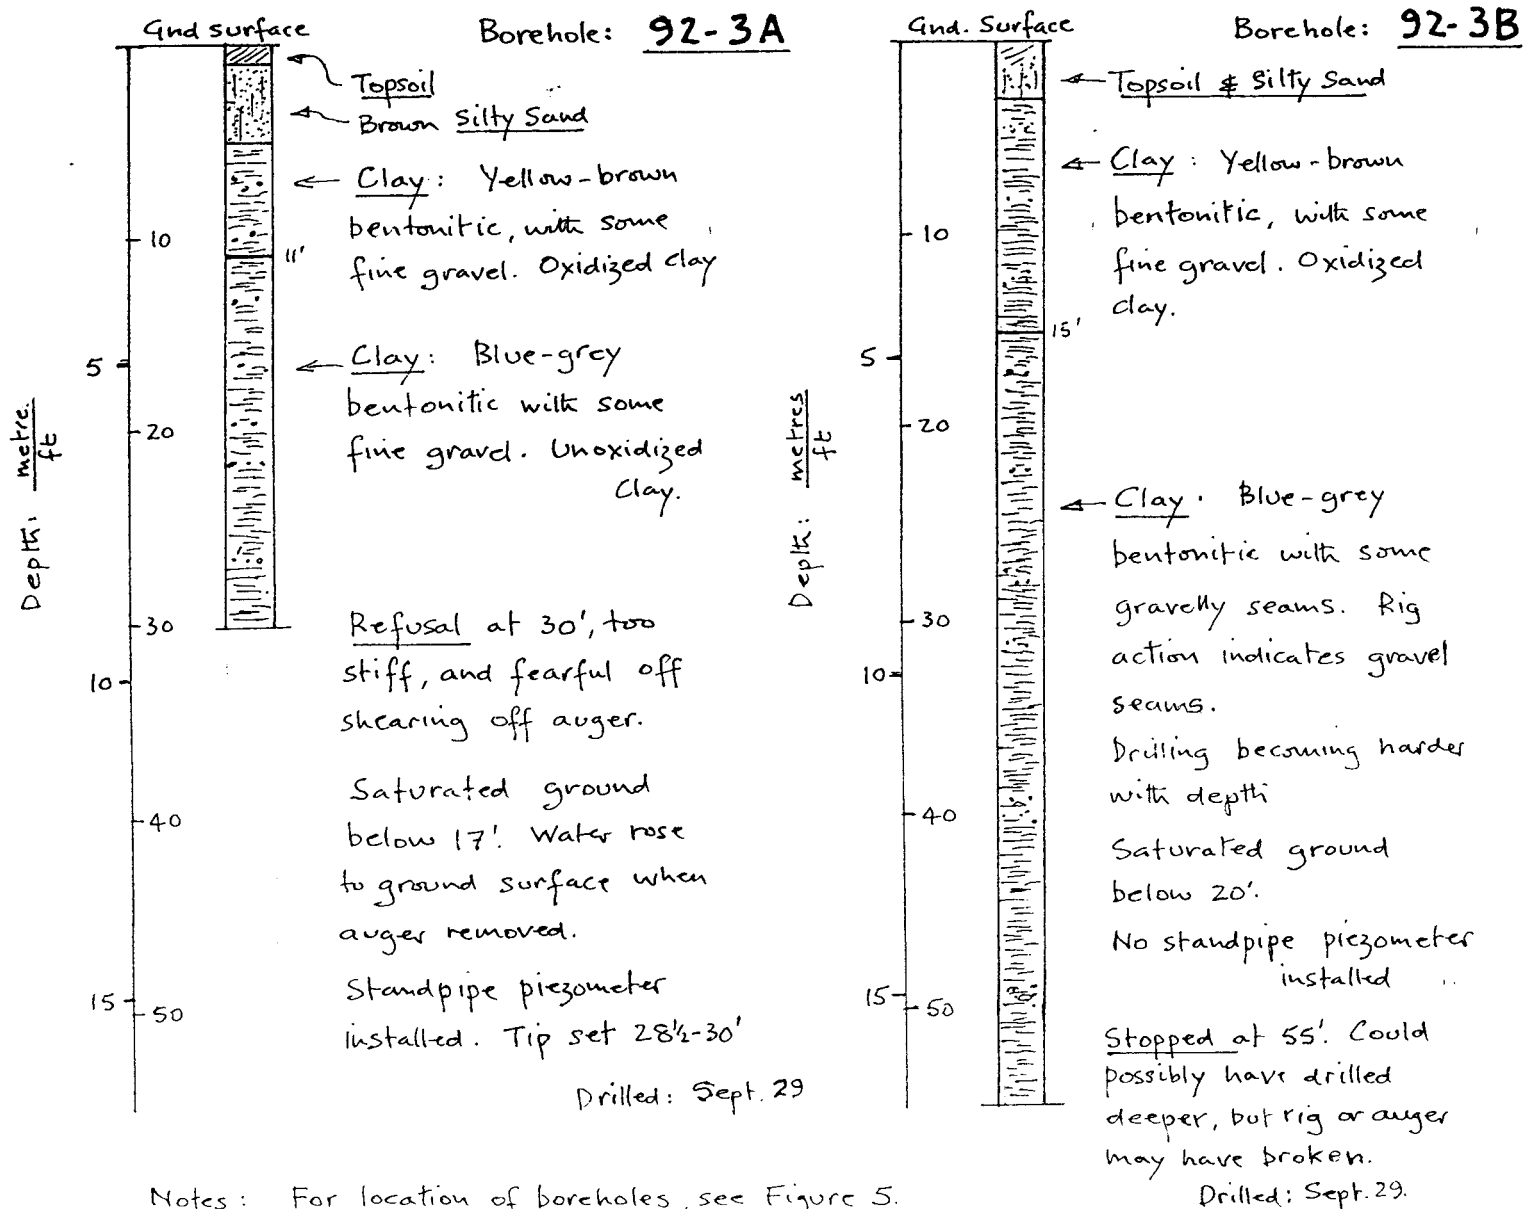 Gnd surface
Borehole: 92-3A
Topsoil
Brown Silty Sand
Clay: Yellow-brown
bentonitic, with some
fine gravel. Oxidized clay
11'
Clay: Blue-grey
bentonitic with some
fine gravel. Unoxidized
Clay.
Refusal at 30', too
stiff, and fearful off
shearing off auger.
Saturated ground
below 17'. Water rose
to ground surface when
auger removed.
Standpipe piezometer
installed. Tip set 28½-30'
Drilled: Sept. 29
Depth: metre.
ft
10
5
20
30
10
40
15
50
Gnd. Surface
Borehole: 92-3B
Topsoil & Silty Sand
Clay: Yellow-brown
bentonitic, with some
fine gravel. Oxidized
clay.
15'
Clay. Blue-grey
bentonitic with some
gravelly seams. Rig
action indicates gravel
seams.
Drilling becoming harder
with depth
Saturated ground
below 20'.
No standpipe piezometer
installed
Stopped at 55'. Could
possibly have drilled
deeper, but rig or auger
may have broken.
Drilled: Sept. 29.
Depth: metres
ft
10
5
20
30
10
40
15
50
Notes: For location of boreholes, see Figure 5.